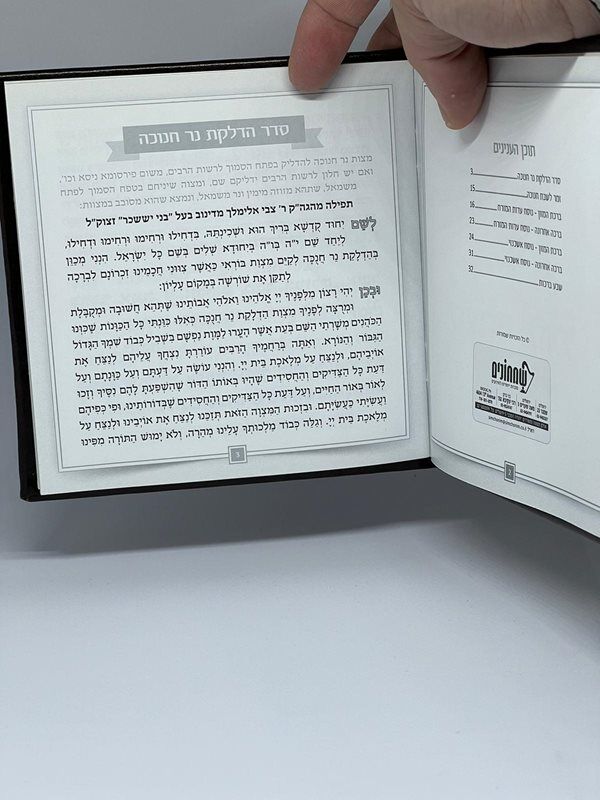 סדר הדלקת נר חנוכה
מצות נר חנוכה להדליק בפתח הסמוך לרשות הרבים, משום פירסומא ניסא וכו',
ואם יש חלון לרשות הרבים ידליקם שם, ומצוה שיניחם בטפח הסמוך לפתח
משמאל, שתהא מזוזה מימין ונר משמאל, ונמצא שהוא מסובב במצוות:
תפילה מהגה"ק ר' צבי אלימלך מדינוב בעל "בני יששכר" זצוק"ל
לְשֵׁם יִחוּד קֻדְשָׁא בְּרִיךְ הוּא וּשְׁכִינְתֵּהּ, בִּדְחִילוּ וּרְחִימוּ וּרְחִימוּ וּדְחִילוּ,
לְיַחֵד שֵׁם י"ה בְּו"ה בְּיִחוּדָא שְׁלִים בְּשֵׁם כָּל יִשְׂרָאֵל. הִנְנִי מְכַוֵּן
בְּהַדְלָקַת נֵר חֲנֻכָּה לְקַיֵּם מִצְוַת בּוֹרְאִי כַּאֲשֶׁר צִוּוּנִי חֲכָמֵינוּ זִכְרוֹנָם לִבְרָכָה
לְתַקֵּן אֶת שׁוֹרְשָׁהּ בְּמָקוֹם עֶלְיוֹן:
וּבְכֵן יְהִי רָצוֹן מִלְּפָנֶיךָ יְיָ אֱלֹהֵינוּ וֵאלֹהֵי אֲבוֹתֵינוּ שֶׁתְּהֵא חֲשׁוּבָה וּמְקֻבֶּלֶת
וּמְרֻצָּה לְפָנֶיךָ מִצְוַת הַדְלָקַת נֵר חֲנֻכָּה כְּאִלּוּ כִּוַּנְתִּי כָּל הַכַּוָּנוֹת שֶׁכִּוְּנוּ
הַכֹּהֲנִים מְשָׁרְתֵי הַשֵּׁם בְּעֵת אֲשֶׁר הֶעֱרוּ לַמָּוֶת נַפְשָׁם בִּשְׁבִיל כְּבוֹד שִׁמְךָ הַגָּדוֹל
הַגִּבּוֹר וְהַנּוֹרָא. וְאַתָּה בְּרַחֲמֶיךָ הָרַבִּים עוֹרַרְתָּ נִצְחֲךָ עֲלֵיהֶם לְנַצֵּחַ אֶת
אוֹיְבֵיהֶם, וּלְנַצֵּחַ עַל מְלֶאכֶת בֵּית יְיָ. וְהִנְנִי עוֹשֶׂה עַל דַּעְתָּם וְעַל כַּוָּנָתָם וְעַל
דַּעַת כָּל הַצַּדִּיקִים וְהַחֲסִידִים שֶׁהָיוּ בְּאוֹתוֹ הַדּוֹר שֶׁהִשְׁפַּעְתָּ לָהֶם נִסֶּיךָ וְזָכוּ
לֵאוֹר בְּאוֹר הַחַיִּים, וְעַל דַּעַת כָּל הַצַּדִּיקִים וְהַחֲסִידִים שֶׁבְּדוֹרוֹתֵינוּ, וּפִי כְּפִיהֶם
וְעָשִׂיתִי כַּעֲשִׂיָּתָם. וּבִזְכוּת הַמִּצְוָה הַזֹּאת תְּזַכֵּנוּ לְנַצֵּחַ אֶת אוֹיְבֵינוּ וּלְנַצֵּחַ עַל
מְלֶאכֶת בֵּית יְיָ. וְגַלֵּה כְּבוֹד מַלְכוּתְךָ עָלֵינוּ מְהֵרָה, וְלֹא יָמוּשׁ הַתּוֹרָה מִפִּינוּ
3
תוכן הענינים
סדר הדלקת נר חנוכה 3
זמר לשבת חנוכה 15
ברכת המזון - נוסח עדות המזרח 16
ברכה אחרונה - נוסח עדות המזרח 23
ברכת המזון - נוסח אשכנזי 24
ברכה אחרונה - נוסח אשכנזי 31
שבע ברכות 32
© כל הזכויות שמורות
שמחונים
2